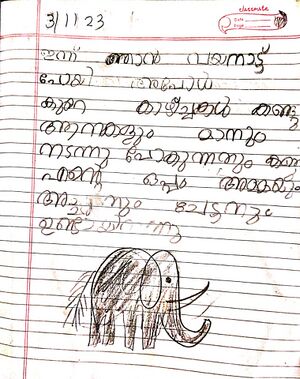 classmate
Date
Page
3/11/23
ഇന്ന് ഞാൻ വയനാട്ട്
പോയി അപോൾ
കുറെ കാഴ്ച്ചകൾ കണ്ടു
ആനകളും മാനും
നടന്നു പോകുന്നതും കണ്ടു
എന്റെ ഒപ്പം അമ്മയും
അച്ഛനും ചേട്ടനും